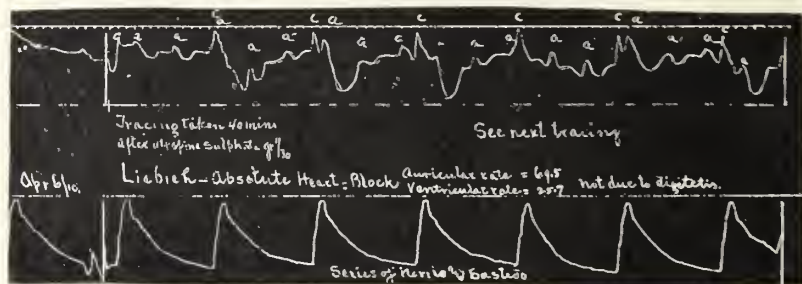 c a c a c c c a c
a a a a a a c a a a a a a a a
Tracing taken 40 mins
after atropine sulphate gr 1/30
See next tracing
Apr 6/10. Liebich - Absolute Heart = Block Auricular rate = 69.5
Ventricular rate = 25.7 not due to digitalis.
Series of